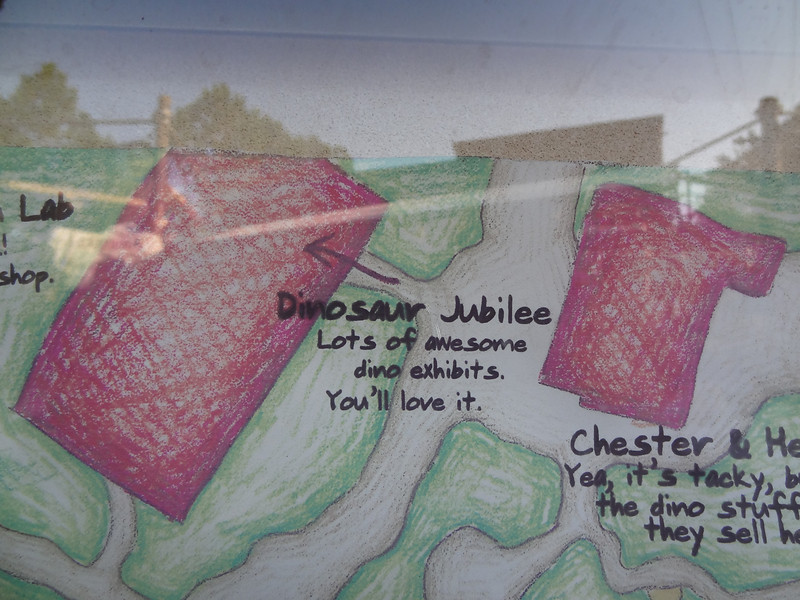 Lab
!
shop.
Dinosaur Jubilee
Lots of awesome
dino exhibits.
You'll love it.
Chester & He
Yea, it's tacky, b
the dino stuff
they sell he